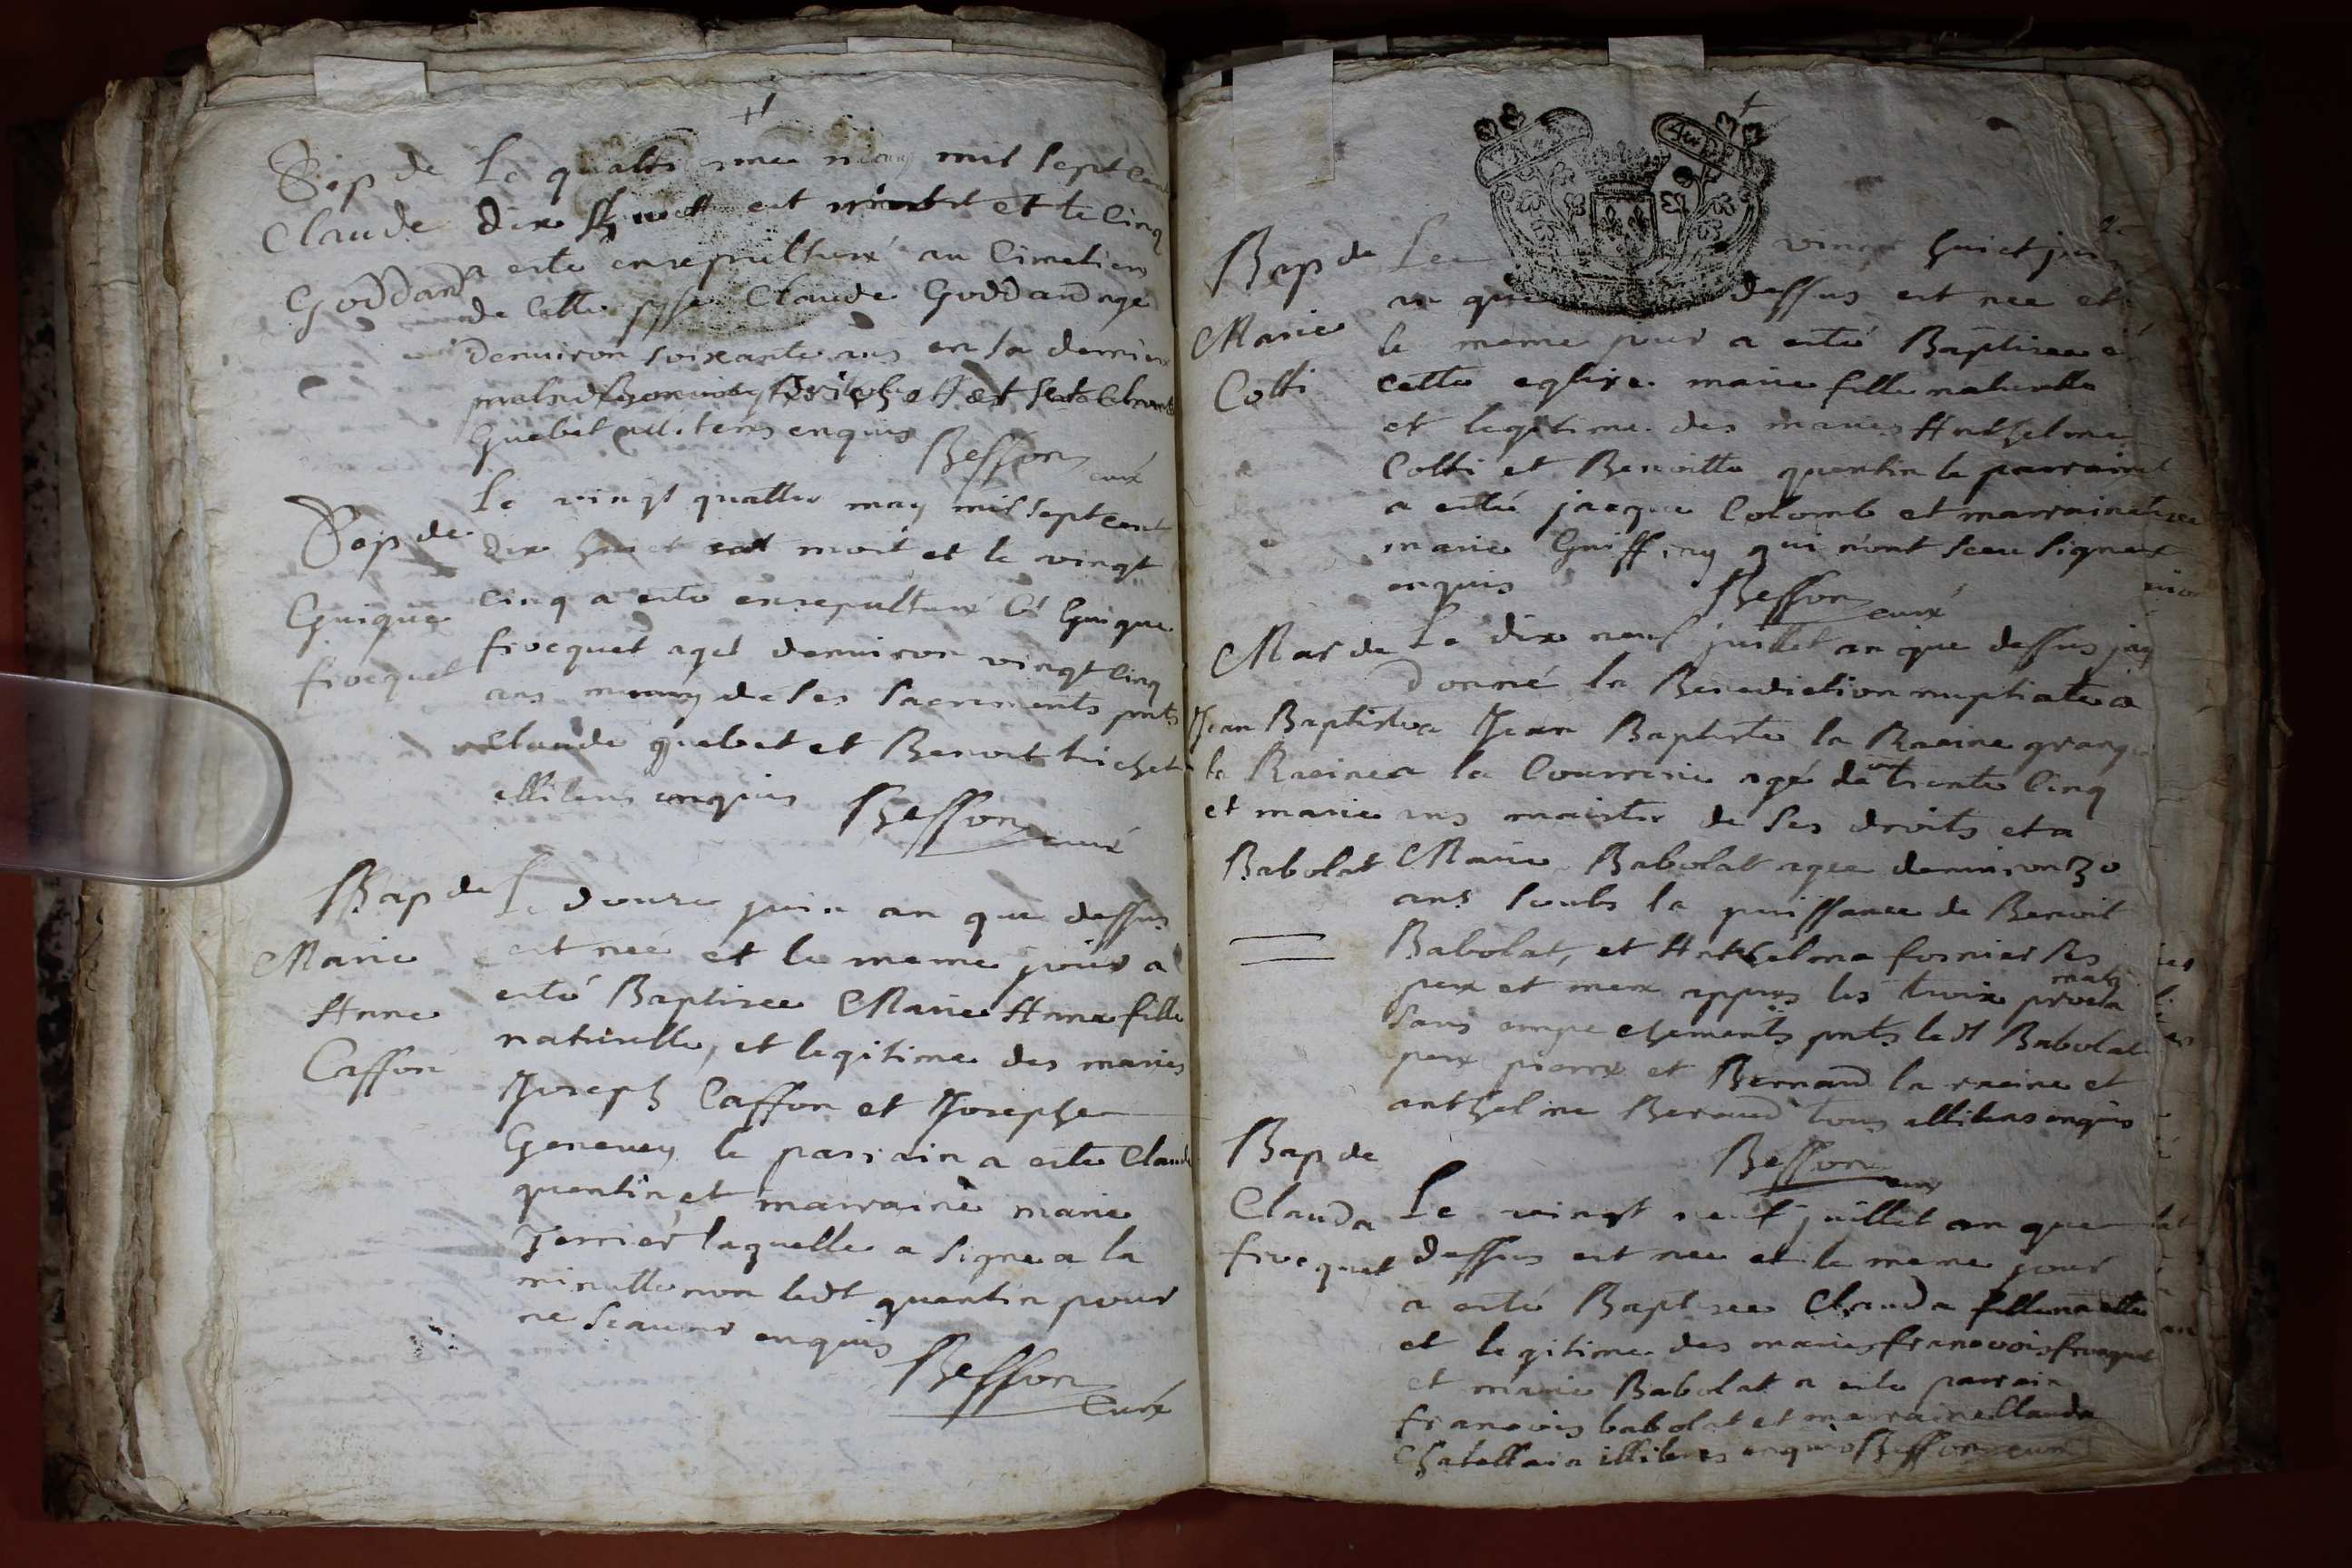 Sep de
Claude
Goddard
Le quattr may mil sept cent
dix huict est mort et le cinq
a esté ensepulturé au cimetiere
de cette psse Claude Goddard age
denuiron soixante ans en sa derniere
Guebet illiterés enquis
Besson curé
Sep de
Guique
fivequet
Le vingt quattre may mil sept cent
dix huict est mort et le vingt
cinq a esté ensepulturé Cl Guique
fivequet aget denuiron vingt cinq
ans muny de ses sacrements pnts
Claude guebet et Benoit trichet
illiterés enquis Besson curé
Bap de
Marie
Anne
Caffon
Le douze juin an que dessus
est née et le meme jour a
esté Baptisee Marie Anne fille
naturelle, et legitime des maries
Joseph Caffon et Josephe
Geneuey le parrain a esté Claude
quentin et marraine marie
Terrier laquelle a signe a la
minutte non ledt quentin pour
ne scauoir enquis
Besson
Curé
Bap de
Marie
Cotti
Le vingt huict juin
an que dessus est nee et
le meme jour a esté Baptisee
cette eglise marie fille naturelle
et legitime des maries Anthelme
Cotti et Benoitte quentin le parrain
a esté jacque Colomb et marraine
marie Guiffrey qui n'ont sceu signer
enquis Besson curé
Mar de
Jean Baptiste
la Racine
et marie
Babolat
Le dix neuf juillet an que dessus jay
donné la Benediction nuptiale a
Jean Baptiste la Racine grang
a la Courrerie agé de trente cinq
ans maistre de ses droits et a
Marie Babolat agee denuiron 30
ans soubs la puissance de Benoit
Babolat, et Anthelma fornier ses
pere et mere appres les troix procla
mats
sans empechements pnts led Babolat
pere pierre et Bernard la racine et
anthelme Beraud tous illiteres enquis
Besson
curé
Bap de
Clauda
fivequet
Le vingt neuf juillet an que
dessus est nee et le meme jour
a esté Baptisee Clauda fille natlle
et legitime des maries francois fivequet
et marie Babolat a esté parrain
francois babolat et marraine Clauda
Chatellain illiteres enquis Besson curé